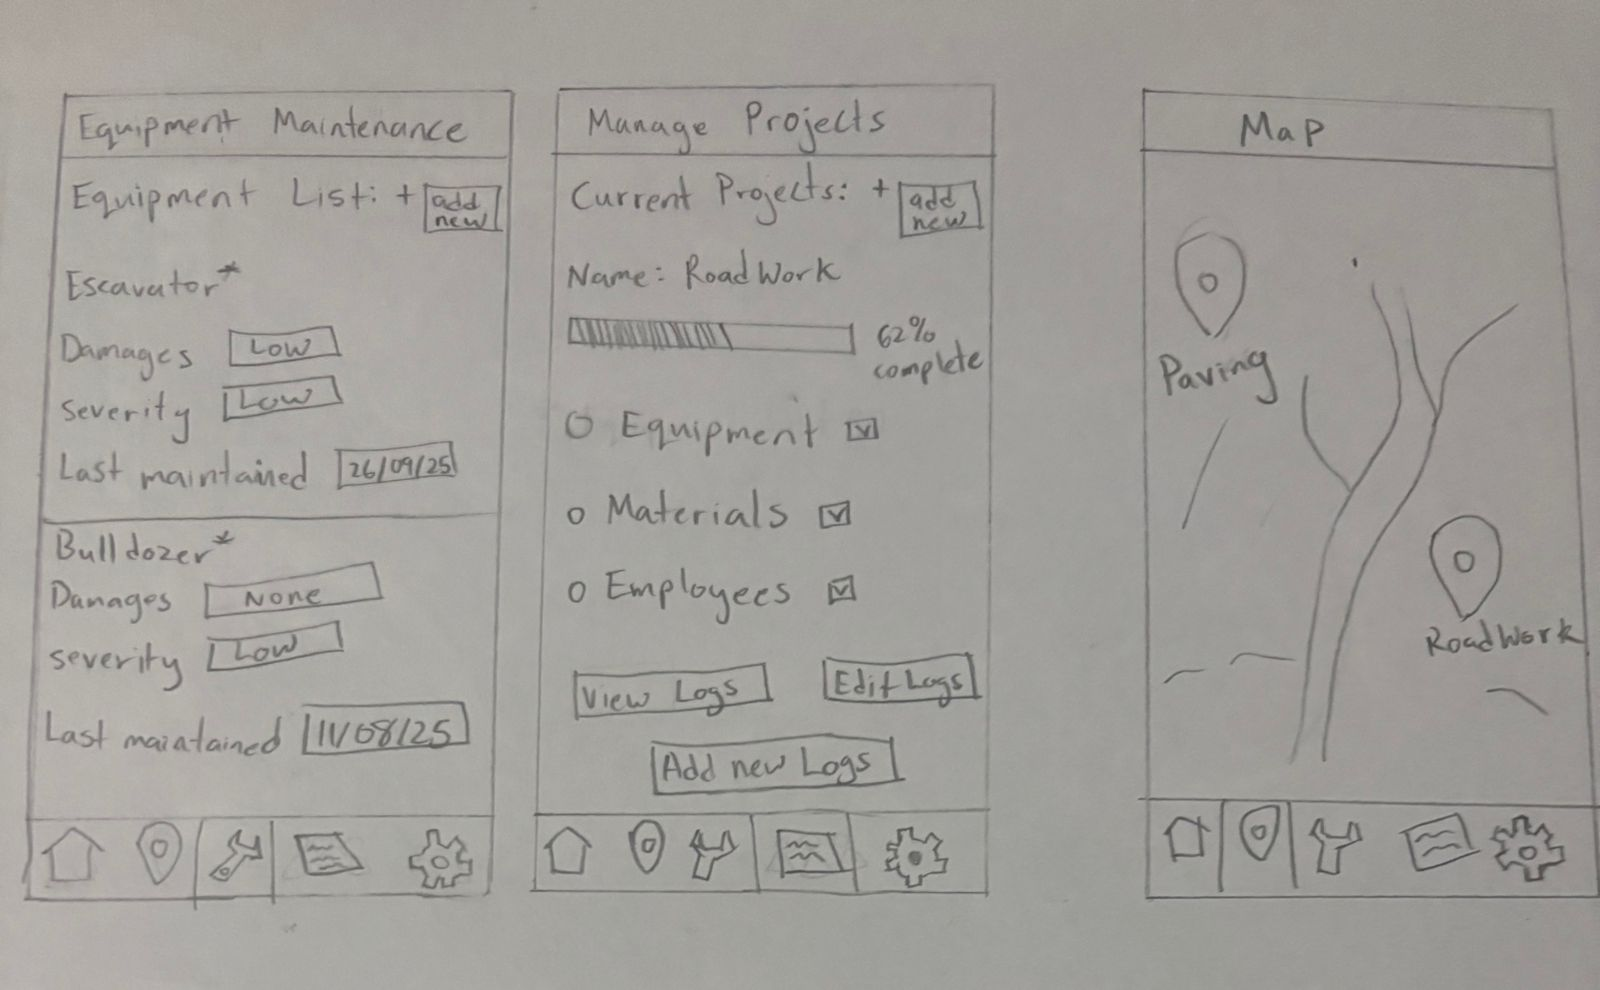 Equipment Maintenance
Equipment List: + add
new
Escavator*
Damages Low
severity Low
Last maintained 26/09/25
Bulldozer*
Damages None
severity Low
Last maintained 11/08/25
Manage Projects
Current Projects: + add
new
Name: RoadWork
62%
complete
Equipment
Materials
Employees
View Logs Edit Logs
Add new Logs
Map
Paving
RoadWork